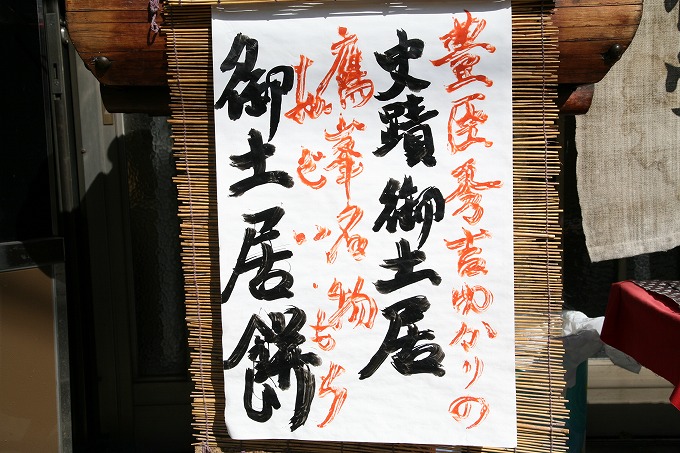 豊臣秀吉ゆかりの
史蹟 御土居
鷹峯名物
おどいもち
御土居餅